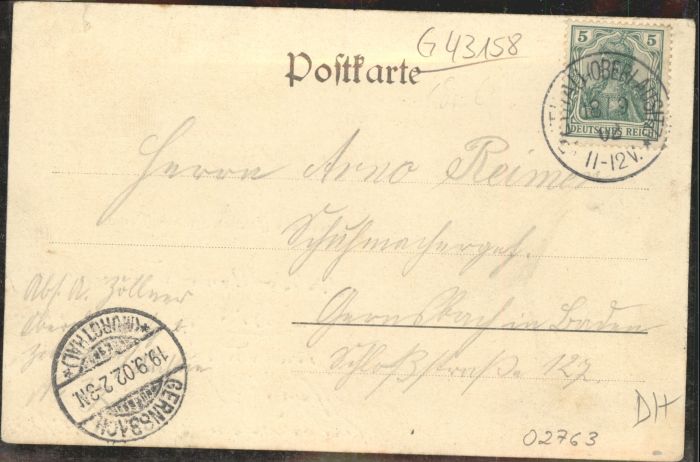 G 43158
Postkarte
5 5
DEUTSCHES REICH
(OBERLAUSITZ)
18 9 02
11-12V.
Herrn Arno Reimer
Schuhmacherges.
Gernsbach in Baden
Schloßstraße 127.
Abs. A. Zöllner
GERNSBACH
*(MURGTHAL)*
19.9.02.2-3N.
DH
02763